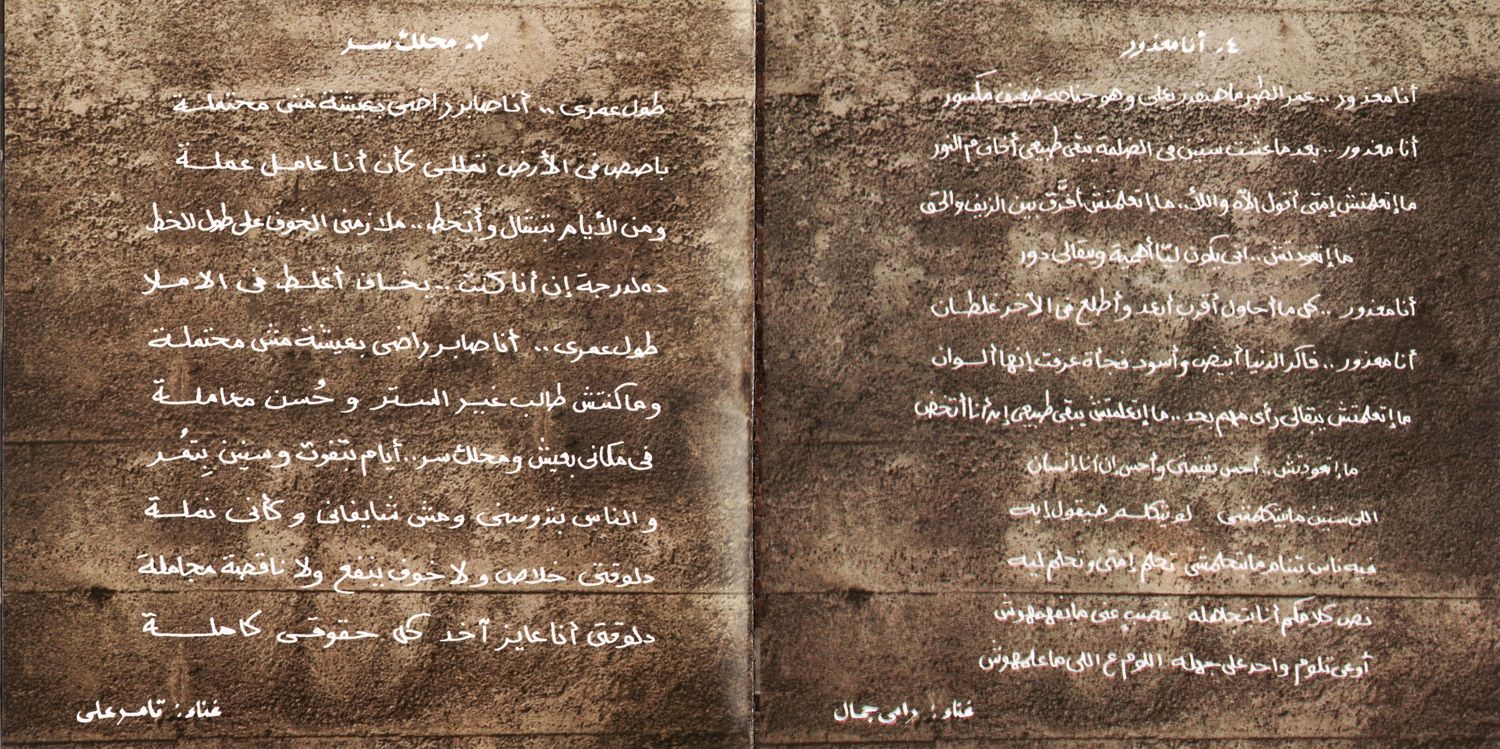 ٣. محلك سر
طول عمرى .. أنا صابر راضى بعيشة مش محتملة
باصص فى الأرض تمللى كأن أنا عامل عملة
ومن الأيام بتشال وأتحط .. ملازمنى الخوف على طول الخط
ده لدرجة إن أنا كنت .. بخاف أغلط فى الاملا
طول عمرى .. أنا صابر راضى بعيشة مش محتملة
وماكنتش طالب غير الستر و حُسن معاملة
فى مكانى بعيش ومحلك سر .. أيام بتفوت وسنين بِتمُر
والناس بتدوسنى ومش شايفانى وكأنى نملة
دلوقتى خلاص ولا خوف ينفع ولا ناقصة مجاملة
دلوقتى أنا عايز آخد كل حقوقى كاملة
غناء: تامر على
٤. أنا معذور
أنا معذور .. عمر الطير ماهيقدر يعلى وهو جناحه ضعيف مكسور
أنا معذور .. بعد ماعشت سنين فى الضلمة يبقى طبيعى أخاف م النور
ما إتعلمتش إمتى أقول الآه واللأ .. ما إتعلمتش أفرَّق بين الزيف والحق
ما إتعودتش .. انى يكون ليا أهمية ويبقالى دور
أنا معذور .. كل ما أحاول أقرب أبعد وأطلع فى الأخر غلطان
أنا معذور .. فاكر الدنيا أبيض وأسود فجأة عرفت إنها ألوان
ما إتعلمتش يبقالى رأى مهم بجد .. ما إتعلمتش يبقى طبيعى إن أنا أتحض
ما إتعودتش .. أحس بقيمتى وأحس إن أنا إنسان
اللى سنين مابيتكلمش لو يتكلم هيقول إيه
فيه ناس تنام مابتحلمش تحلم إمتى وتحلم ليه
نص كلامكم أنا بتجاهله غصبٍ عنى مابفهموش
أوعى تلوم واحد على جهله اللوم ع اللى ماعلمهوش
غناء: رامى جمال